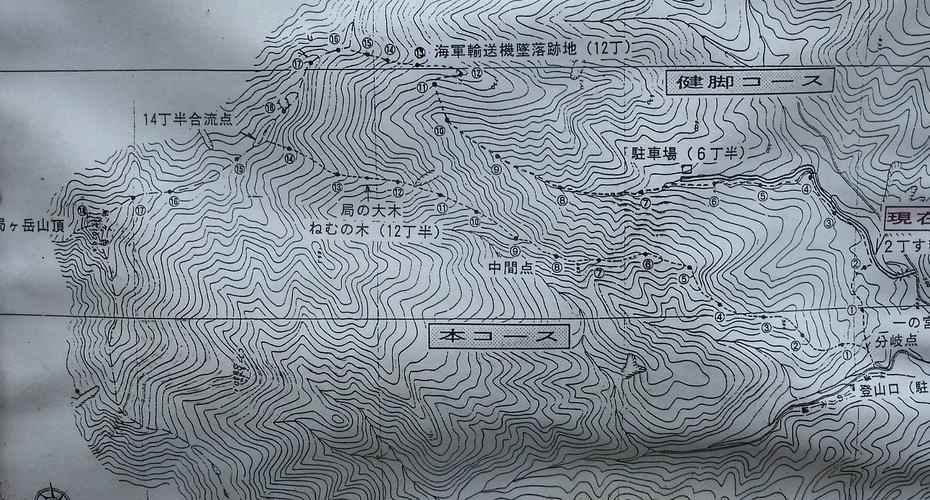 ⑯ ⑮ ⑭ ⑬ 海軍輸送機墜落跡地 (12丁)
⑰ ⑫
⑪
健脚コース
⑱
14丁半合流点
⑩
駐車場 (6丁半)
⑭
⑮ ⑨
⑬ ⑫ ⑧ ⑦ ⑥ ⑤ ④
局の大木
ねむの木 (12丁半)
⑯ ⑰ ⑱
⑪ ⑩
局ヶ岳山頂
③
現在
2丁す
⑨
中間点
⑧ ⑦ ⑥ ⑤ ②
①
④ ③ ②
本コース
一の宮
分岐点
①
登山口 (駐